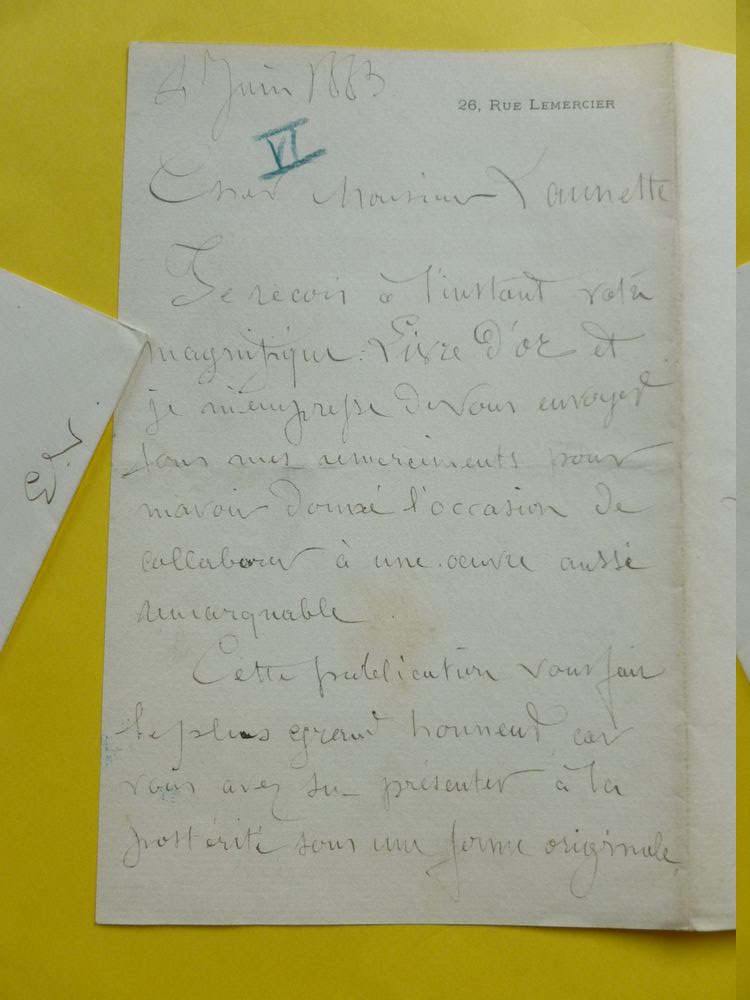 4 Juin 1883.
26, Rue Lemercier
VI
Cher Monsieur Launette
Je recois à l'instant votre
magnifique Livre d'or et
je m'empresse de vous envoyer
tous mes remerciments pour
m'avoir donné l'occasion de
collaborer à une oeuvre aussi
remarquable.
Cette publication vous fait
le plus grand honneur, car
vous avez su présenter à la
postérité, sous une forme originale,